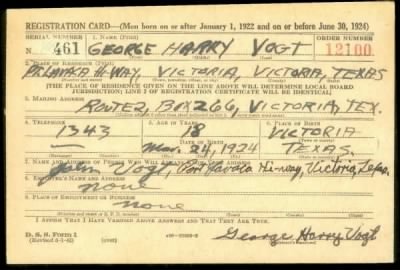 REGISTRATION CARD—(Men born on or after January 1, 1922 and on or before June 30, 1924)
SERIAL NUMBER 1. NAME (Print) ORDER NUMBER
N 461 GEORGE HARRY VOGT 12100
2. PLACE OF RESIDENCE (Print)
PT. LAVACA HI-WAY, VICTORIA, VICTORIA, TEXAS
(THE PLACE OF RESIDENCE GIVEN ON THE LINE ABOVE WILL DETERMINE LOCAL BOARD
JURISDICTION; LINE 2 OF REGISTRATION CERTIFICATE WILL BE IDENTICAL)
3. MAILING ADDRESS
ROUTE 2, BOX 266, VICTORIA, TEX.
4. TELEPHONE 5. AGE IN YEARS 6. PLACE OF BIRTH
1343 18 VICTORIA
DATE OF BIRTH
Mar. 24, 1924 TEXAS.
7. NAME AND ADDRESS OF PERSON WHO WILL ALWAYS KNOW YOUR ADDRESS
John Vogt, Port Lavaca Hi-way, Victoria, Texas.
8. EMPLOYER'S NAME AND ADDRESS
none
9. PLACE OF EMPLOYMENT OR BUSINESS
none
I AFFIRM THAT I HAVE VERIFIED ABOVE ANSWERS AND THAT THEY ARE TRUE.
D. S. S. FORM 1
George Harry Vogt